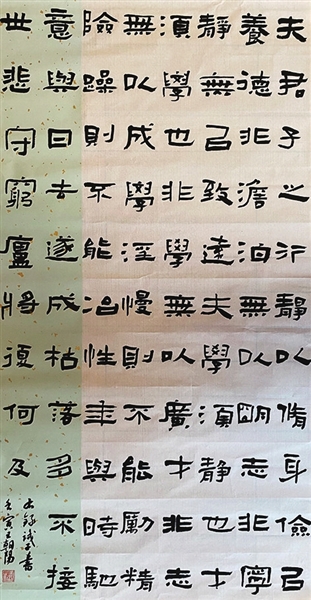 夫君子之行靜以脩身儉㠯
養德非澹泊無以明志非寧
靜無㠯致遠夫學須靜也才
須學也非學無以廣才非志
無以成學淫慢則不能勵精
險躁則不能治性年與時馳
意與日去遂成枯落多不接
世悲守窮廬將復何及
錄誡子書
壬寅王朝陽